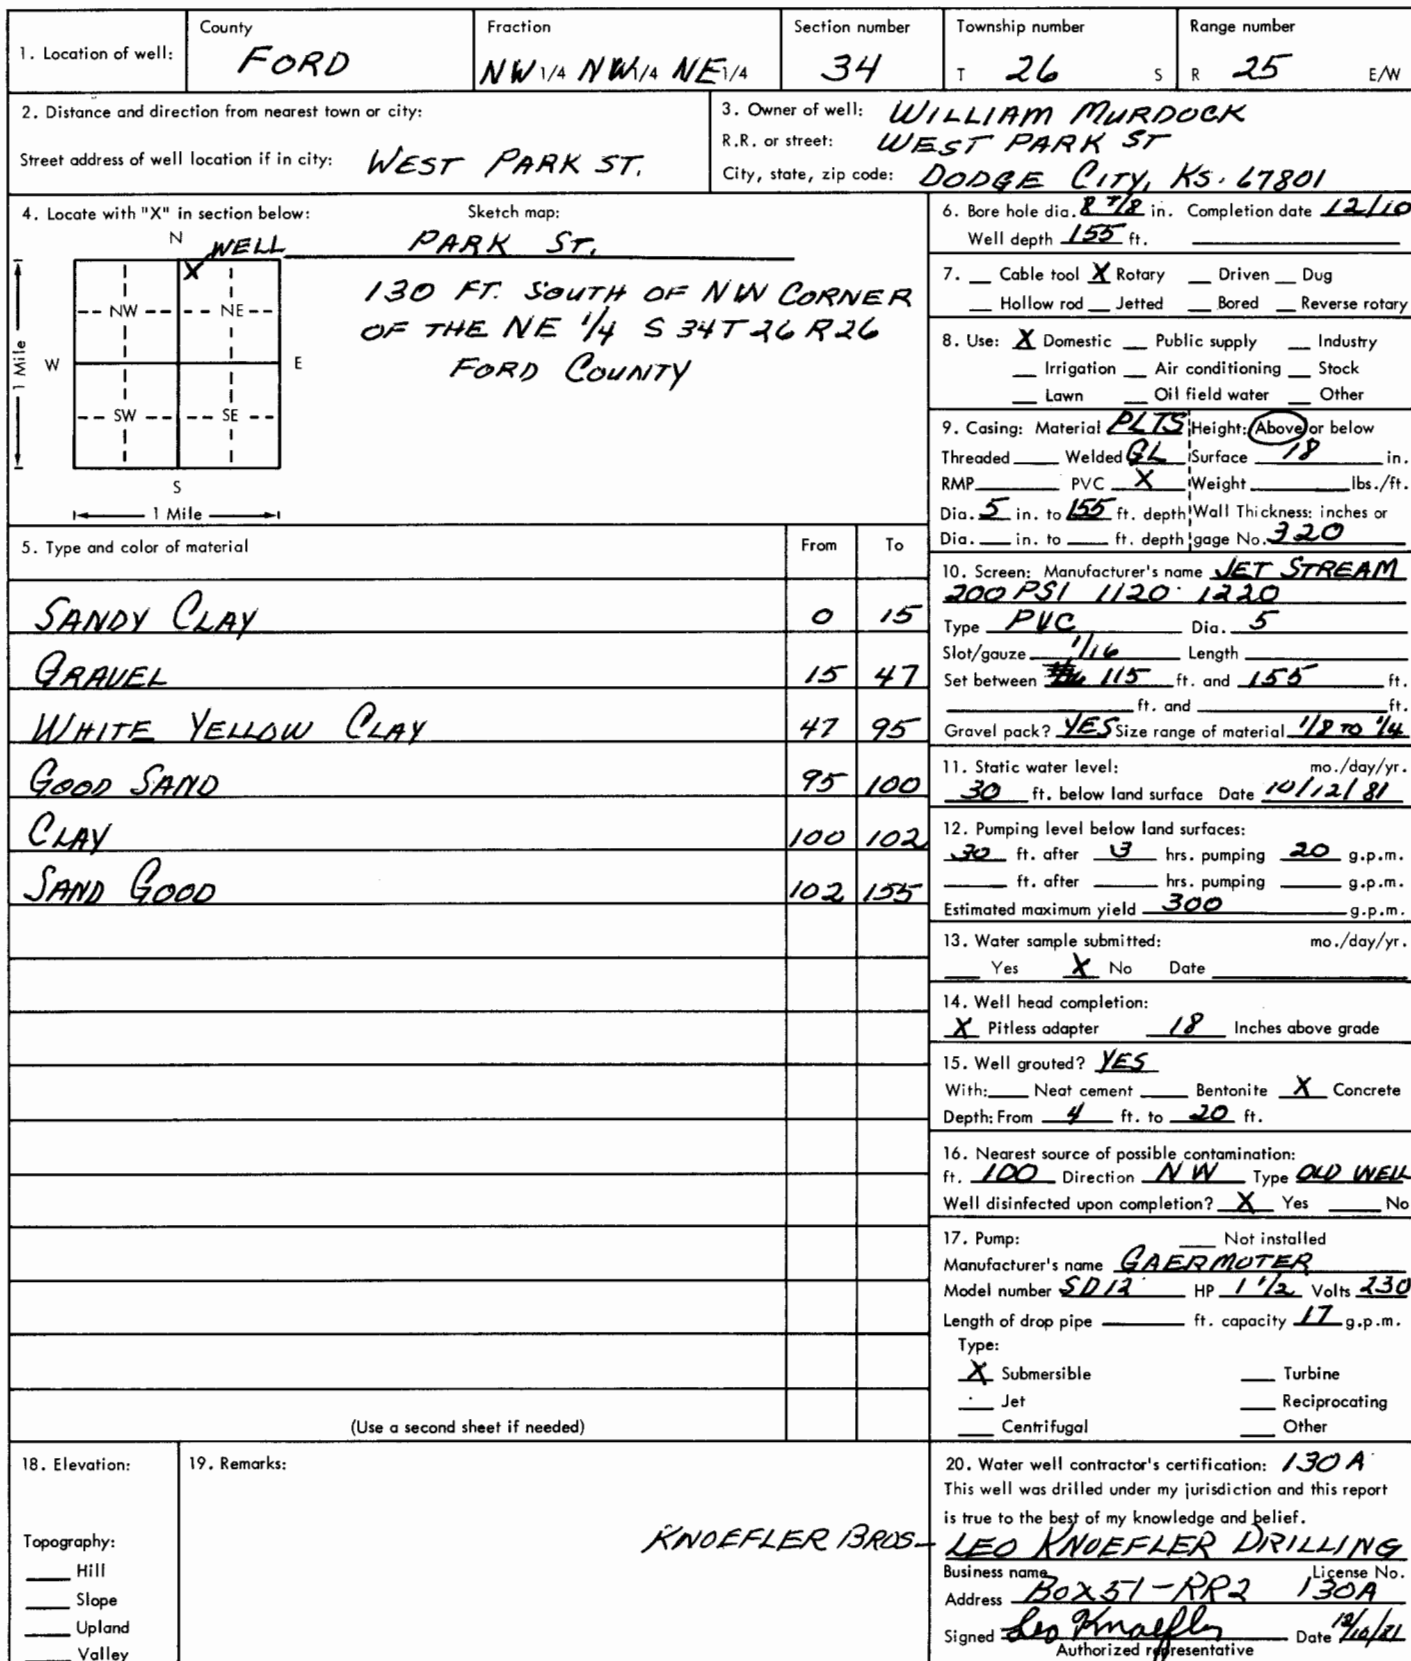 1. Location of well:
County
FORD
Fraction
NW 1/4 NW 1/4 NE 1/4
Section number
34
Township number
T 26 S
Range number
R 25 E/W
2. Distance and direction from nearest town or city:
Street address of well location if in city: WEST PARK ST.
3. Owner of well: WILLIAM MURDOCK
R.R. or street: WEST PARK ST
City, state, zip code: DODGE CITY, KS. 67801
4. Locate with "X" in section below:
Sketch map:
N
WELL
PARK ST.
X
NW
NE
W
E
SW
SE
S
1 Mile
1 Mile
130 FT. SOUTH OF NW CORNER
OF THE NE 1/4 S 34 T 26 R 26
FORD COUNTY
5. Type and color of material From To
SANDY CLAY 0 15
GRAVEL 15 47
WHITE YELLOW CLAY 47 95
GOOD SAND 95 100
CLAY 100 102
SAND GOOD 102 155
(Use a second sheet if needed)
6. Bore hole dia. 8 7/8 in. Completion date 12/10
Well depth 155 ft.
7. Cable tool X Rotary Driven Dug
Hollow rod Jetted Bored Reverse rotary
8. Use: X Domestic Public supply Industry
Irrigation Air conditioning Stock
Lawn Oil field water Other
9. Casing: Material PLTS Height: Above or below
Threaded Welded GL Surface 18 in.
RMP PVC X Weight lbs./ft.
Dia. 5 in. to 155 ft. depth Wall Thickness: inches or
Dia. in. to ft. depth gage No. 320
10. Screen: Manufacturer's name JET STREAM
200 PSI 1120 · 1220
Type PVC Dia. 5
Slot/gauze 1/16 Length
Set between 115 ft. and 155 ft.
ft. and ft.
Gravel pack? YES Size range of material 1/8 TO 1/4
11. Static water level: mo./day/yr.
30 ft. below land surface Date 10/12/81
12. Pumping level below land surfaces:
30 ft. after 3 hrs. pumping 20 g.p.m.
ft. after hrs. pumping g.p.m.
Estimated maximum yield 300 g.p.m.
13. Water sample submitted: mo./day/yr.
Yes X No Date
14. Well head completion:
X Pitless adapter 18 Inches above grade
15. Well grouted? YES
With: Neat cement Bentonite X Concrete
Depth: From 4 ft. to 20 ft.
16. Nearest source of possible contamination:
ft. 100 Direction NW Type OLD WELL
Well disinfected upon completion? X Yes No
17. Pump: Not installed
Manufacturer's name GAERMOTER
Model number SD12 HP 1 1/2 Volts 230
Length of drop pipe ft. capacity 17 g.p.m.
Type:
X Submersible Turbine
Jet Reciprocating
Centrifugal Other
18. Elevation:
Topography:
Hill
Slope
Upland
Valley
19. Remarks:
KNOEFLER BROS—
20. Water well contractor's certification: 130 A
This well was drilled under my jurisdiction and this report
is true to the best of my knowledge and belief.
LEO KNOEFLER DRILLING
Business name License No.
Address BOX 51 - RR2 130A
Signed Leo Knoefler Date 12/10/81
Authorized representative